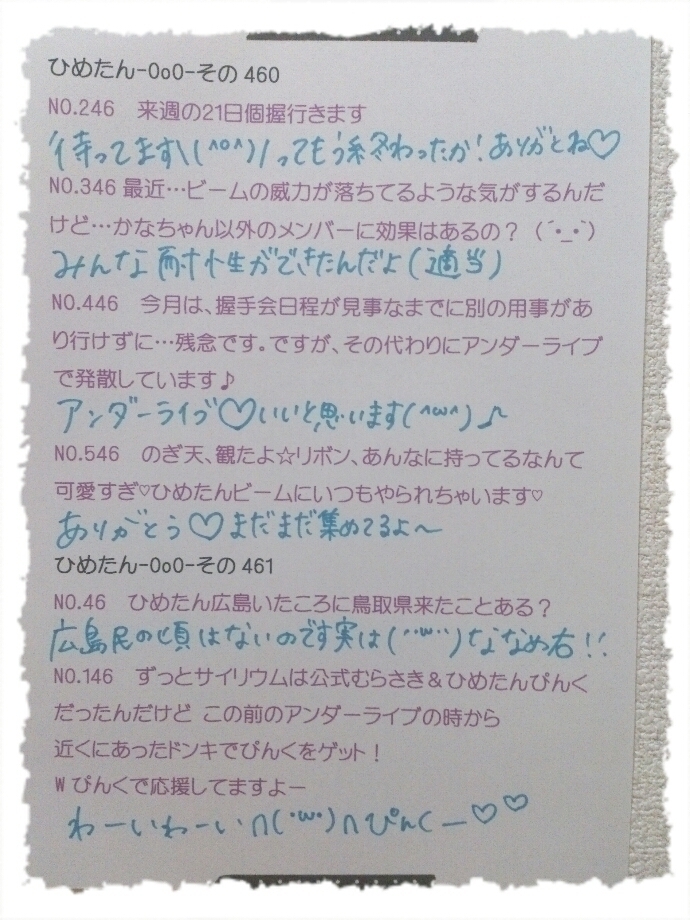 ひめたん-OoO-その460
NO.246 来週の21日個握行きます
待ってます\(^o^)/ってもう終わったか!ありがとね♡
NO.346 最近…ビームの威力が落ちてるような気がするんだ
けど…かなちゃん以外のメンバーに効果はあるの?(´•_•`)
みんな耐性ができたんだよ(適当)
NO.446 今月は、握手会日程が見事なまでに別の用事があ
り行けずに…残念です。ですが、その代わりにアンダーライブ
で発散しています♪
アンダーライブ♡いいと思います(^ω^)♪
NO.546 のぎ天、観たよ☆リボン、あんなに持ってるなんて
可愛すぎ♡ひめたんビームにいつもやられちゃいます♡
ありがとう♡まだまだ集めてるよ〜
ひめたん-OoO-その461
NO.46 ひめたん広島いたころに鳥取県来たことある?
広島民の頃はないのです実は(¨ω¨)ななめ右!!
NO.146 ずっとサイリウムは公式むらさき&ひめたんぴんく
だったんだけど この前のアンダーライブの時から
近くにあったドンキでぴんくをゲット!
Wぴんくで応援してますよー
わーいわーい∩(・ω・)∩ぴんくー♡♡